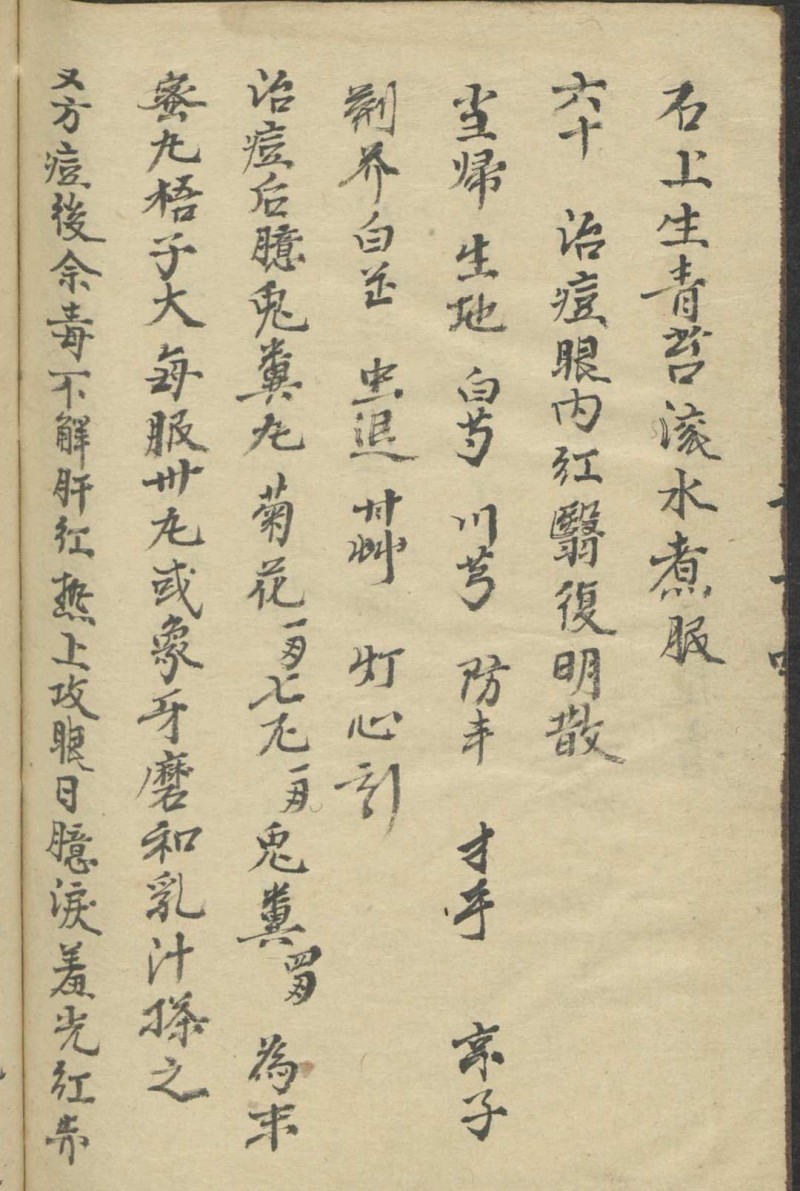 石上生青苔滚水煮服
六十 治痘眼内红翳復明散
当歸 生地 白芍 川芎 防丰 才乎 京子
荆芥 白芷 虫退 甘艸 灯心引
治痘后臆兎糞丸 菊花一両 七兎糞四両 為末
蜜丸梧子大每服卅丸或象牙磨和乳汁搽之
又方痘後余毒不解肝红热上攻眼日臆淚羞光红赤